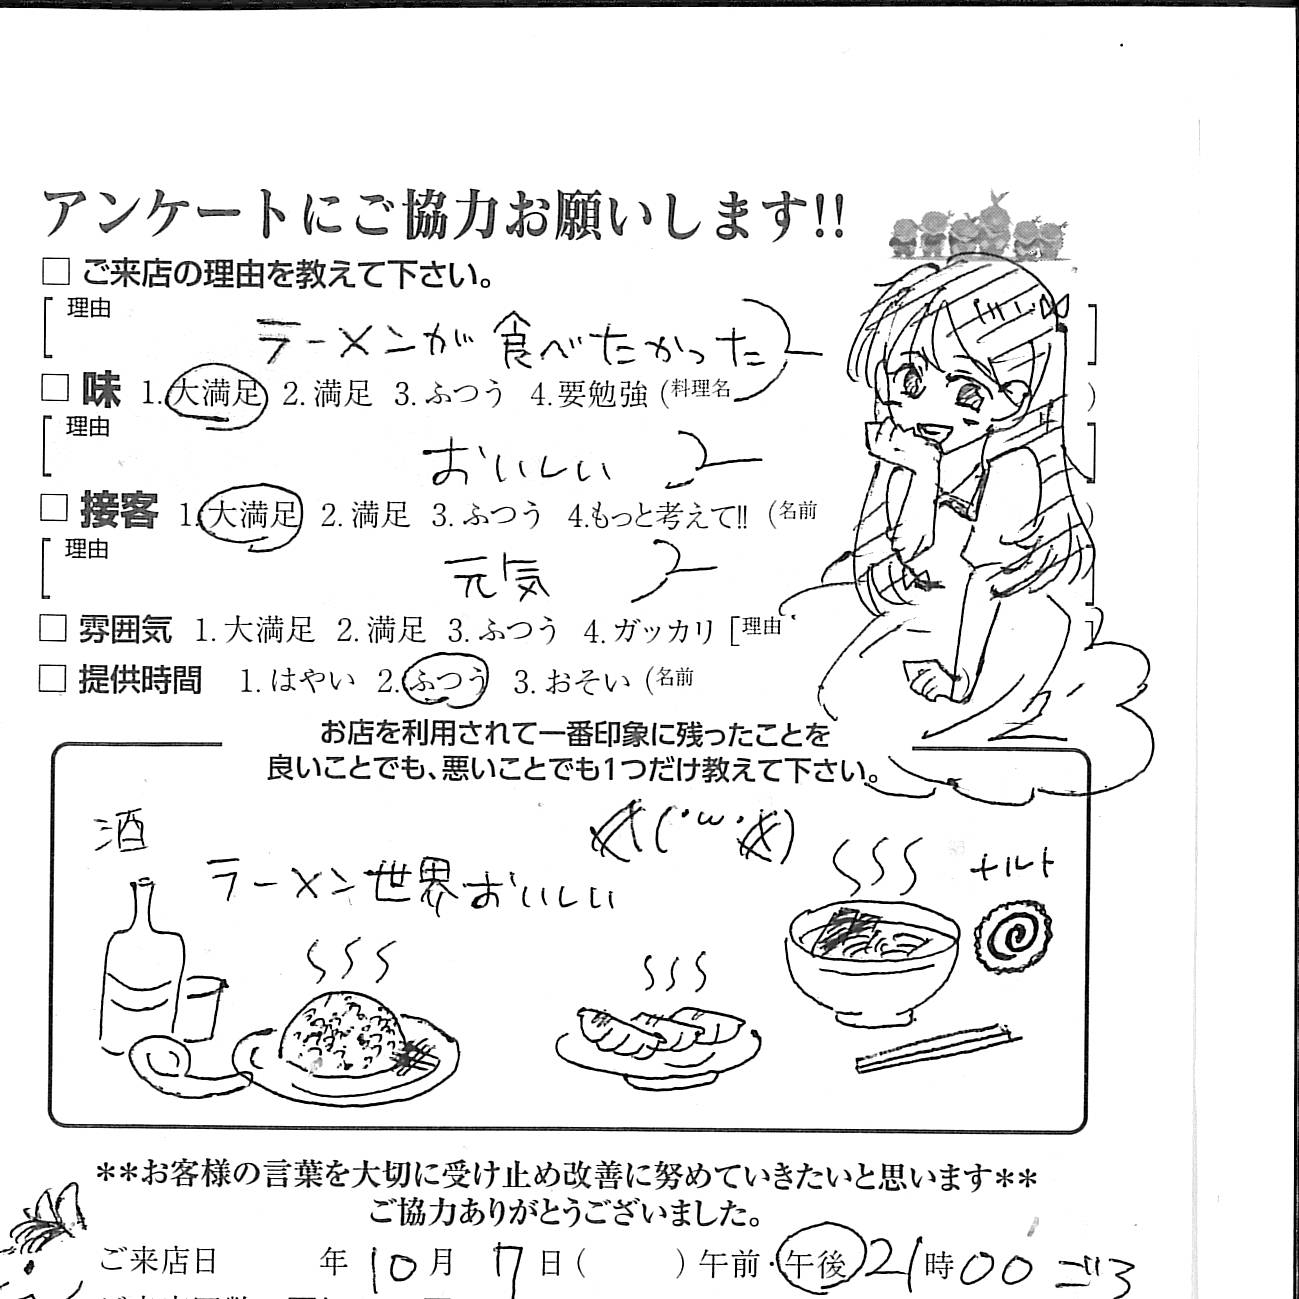 アンケートにご協力お願いします!!
□ ご来店の理由を教えて下さい。
[理由 ラーメンが食べたかった ]
□ 味 1.大満足 2.満足 3.ふつう 4.要勉強 (料理名 )
[理由 おいしい ]
□ 接客 1.大満足 2.満足 3.ふつう 4.もっと考えて!! (名前 )
[理由 元気 ]
□ 雰囲気 1.大満足 2.満足 3.ふつう 4.ガッカリ [理由 ]
□ 提供時間 1.はやい 2.ふつう 3.おそい (名前
お店を利用されて一番印象に残ったことを
良いことでも、悪いことでも1つだけ教えて下さい。
酒
(・ω・)
ラーメン世界おいしい
ナルト
**お客様の言葉を大切に受け止め改善に努めていきたいと思います**
ご協力ありがとうございました。
ご来店日 年 10月 7日( )午前・午後 21時00ごろ